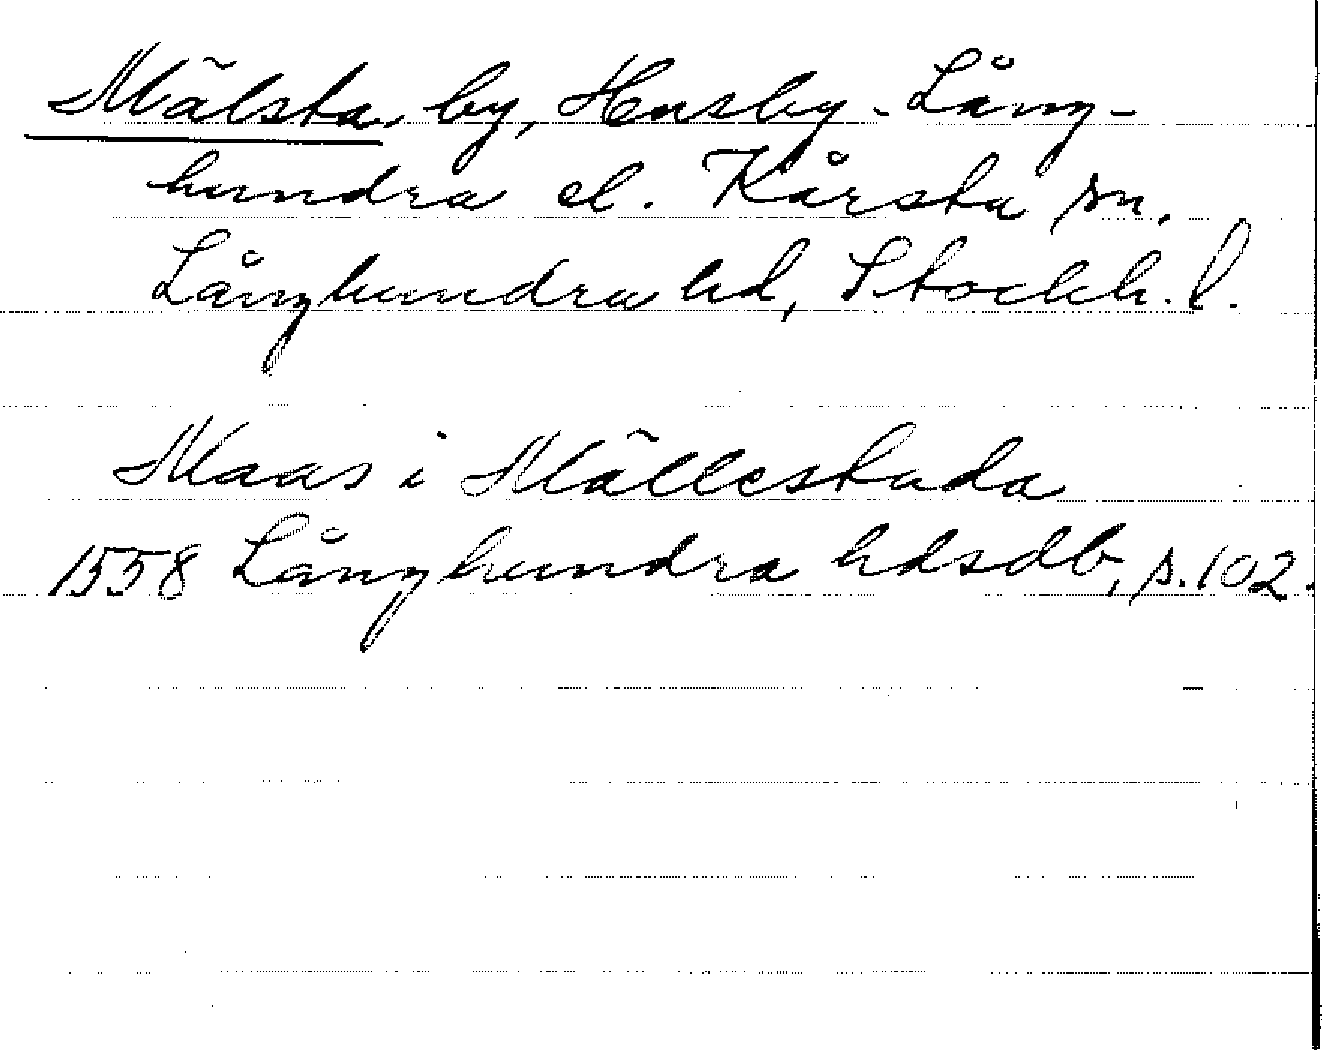 Mälsta, by, Husby-Lång-
hundra el. Kårsta sn,
Långhundra hd, Stockh. l.
Maas i Mällestada
1558 Långhundra hdsdb, s. 102.